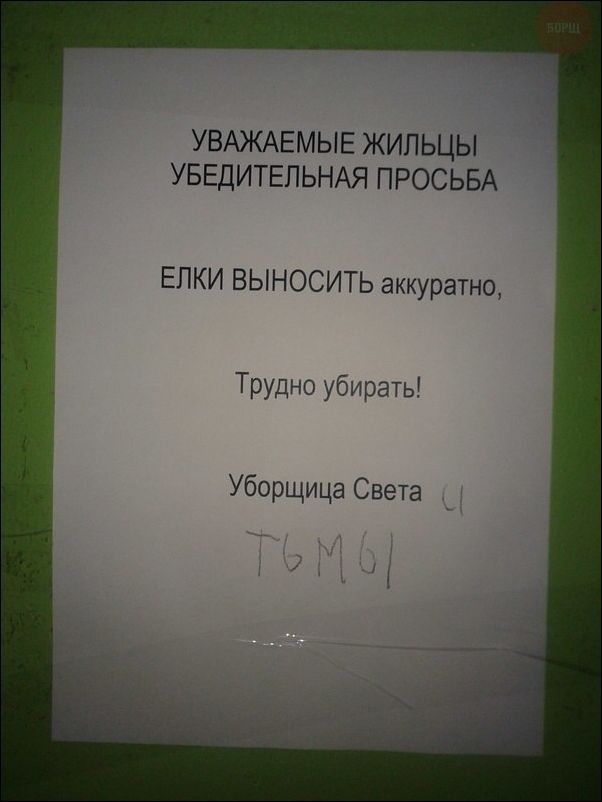 БОРЩ
УВАЖАЕМЫЕ ЖИЛЬЦЫ
УБЕДИТЕЛЬНАЯ ПРОСЬБА
ЕЛКИ ВЫНОСИТЬ аккуратно,
Трудно убирать!
Уборщица Света и
ТЬМЫ